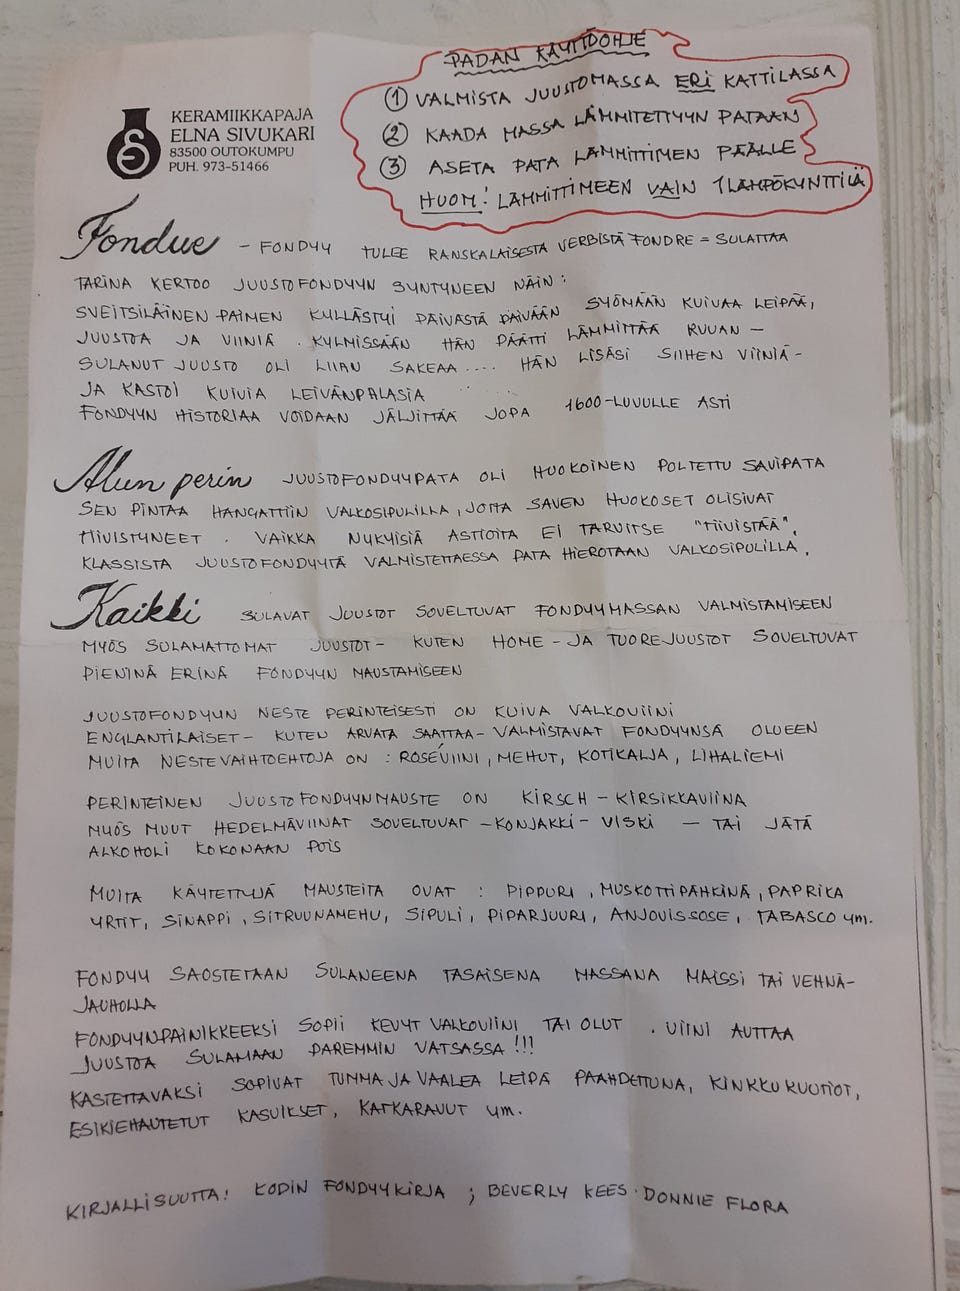 PADAN KÄYTTÖOHJE
① VALMISTA JUUSTOMASSA ERI KATTILASSA
② KAADA MASSA LÄMMITETTYYN PATAAN
③ ASETA PATA LÄMMITTIMEN PÄÄLLE
HUOM! LÄMMITTIMEEN VAIN 1 LÄMPÖKYNTTILÄ
KERAMIIKKAPAJA
ELNA SIVUKARI
83500 OUTOKUMPU
PUH. 973-51466
Fondue – FONDYY TULEE RANSKALAISESTA VERBISTÄ FONDRE = SULATTAA
TARINA KERTOO JUUSTOFONDYYN SYNTYNEEN NÄIN:
SVEITSILÄINEN PAIMEN KYLLÄSTYI PÄIVÄSTÄ PÄIVÄÄN SYÖMÄÄN KUIVAA LEIPÄÄ,
JUUSTOA JA VIINIÄ. KYLMISSÄÄN HÄN PÄÄTTI LÄMMITTÄÄ RUUAN –
SULANUT JUUSTO OLI LIIAN SAKEAA .... HÄN LISÄSI SIIHEN VIINIÄ –
JA KASTOI KUIVIA LEIVÄNPALASIA
FONDYYN HISTORIAA VOIDAAN JÄLJITTÄÄ JOPA 1600-LUVULLE ASTI
Alun perin JUUSTOFONDYYPATA OLI HUOKOINEN POLTETTU SAVIPATA
SEN PINTAA HANGATTIIN VALKOSIPULILLA, JOTTA SAVEN HUOKOSET OLISIVAT
TIIVISTYNEET. VAIKKA NYKYISIÄ ASTIOITA EI TARVITSE "TIIVISTÄÄ",
KLASSISTA JUUSTOFONDYYTÄ VALMISTETTAESSA PATA HIEROTAAN VALKOSIPULILLA.
Kaikki SULAVAT JUUSTOT SOVELTUVAT FONDYYMASSAN VALMISTAMISEEN
MYÖS SULAMATTOMAT JUUSTOT – KUTEN HOME – JA TUOREJUUSTOT SOVELTUVAT
PIENINÄ ERINÄ FONDYYN MAUSTAMISEEN
JUUSTOFONDYYN NESTE PERINTEISESTI ON KUIVA VALKOVIINI
ENGLANTILAISET – KUTEN ARVATA SAATTAA – VALMISTAVAT FONDYYNSÄ OLUEEN
MUITA NESTEVAIHTOEHTOJA ON: ROSÉVIINI, MEHUT, KOTIKALJA, LIHALIEMI
PERINTEINEN JUUSTOFONDYYNMAUSTE ON KIRSCH – KIRSIKKAVIINA
MYÖS MUUT HEDELMÄVIINAT SOVELTUVAT – KONJAKKI – VISKI – TAI JÄTÄ
ALKOHOLI KOKONAAN POIS
MUITA KÄYTETTYJÄ MAUSTEITA OVAT: PIPPURI, MUSKOTTIPÄHKINÄ, PAPRIKA
YRTIT, SINAPPI, SITRUUNAMEHU, SIPULI, PIPARJUURI, ANJOVISSOSE, TABASCO ym.
FONDYY SAOSTETAAN SULANEENA TASAISENA MASSANA MAISSI TAI VEHNÄ-
JAUHOLLA
FONDYYNPAINIKKEEKSI SOPII KEVYT VALKOVIINI TAI OLUT. VIINI AUTTAA
JUUSTOA SULAMAAN PAREMMIN VATSASSA!!!
KASTETTAVAKSI SOPIVAT TUMMA JA VAALEA LEIPÄ PAAHDETTUNA, KINKKUKUUTIOT,
ESIKIEHAUTETUT KASVIKSET, KATKARAVUT ym.
KIRJALLISUUTTA: KODIN FONDYYKIRJA; BEVERLY KEES · DONNIE FLORA